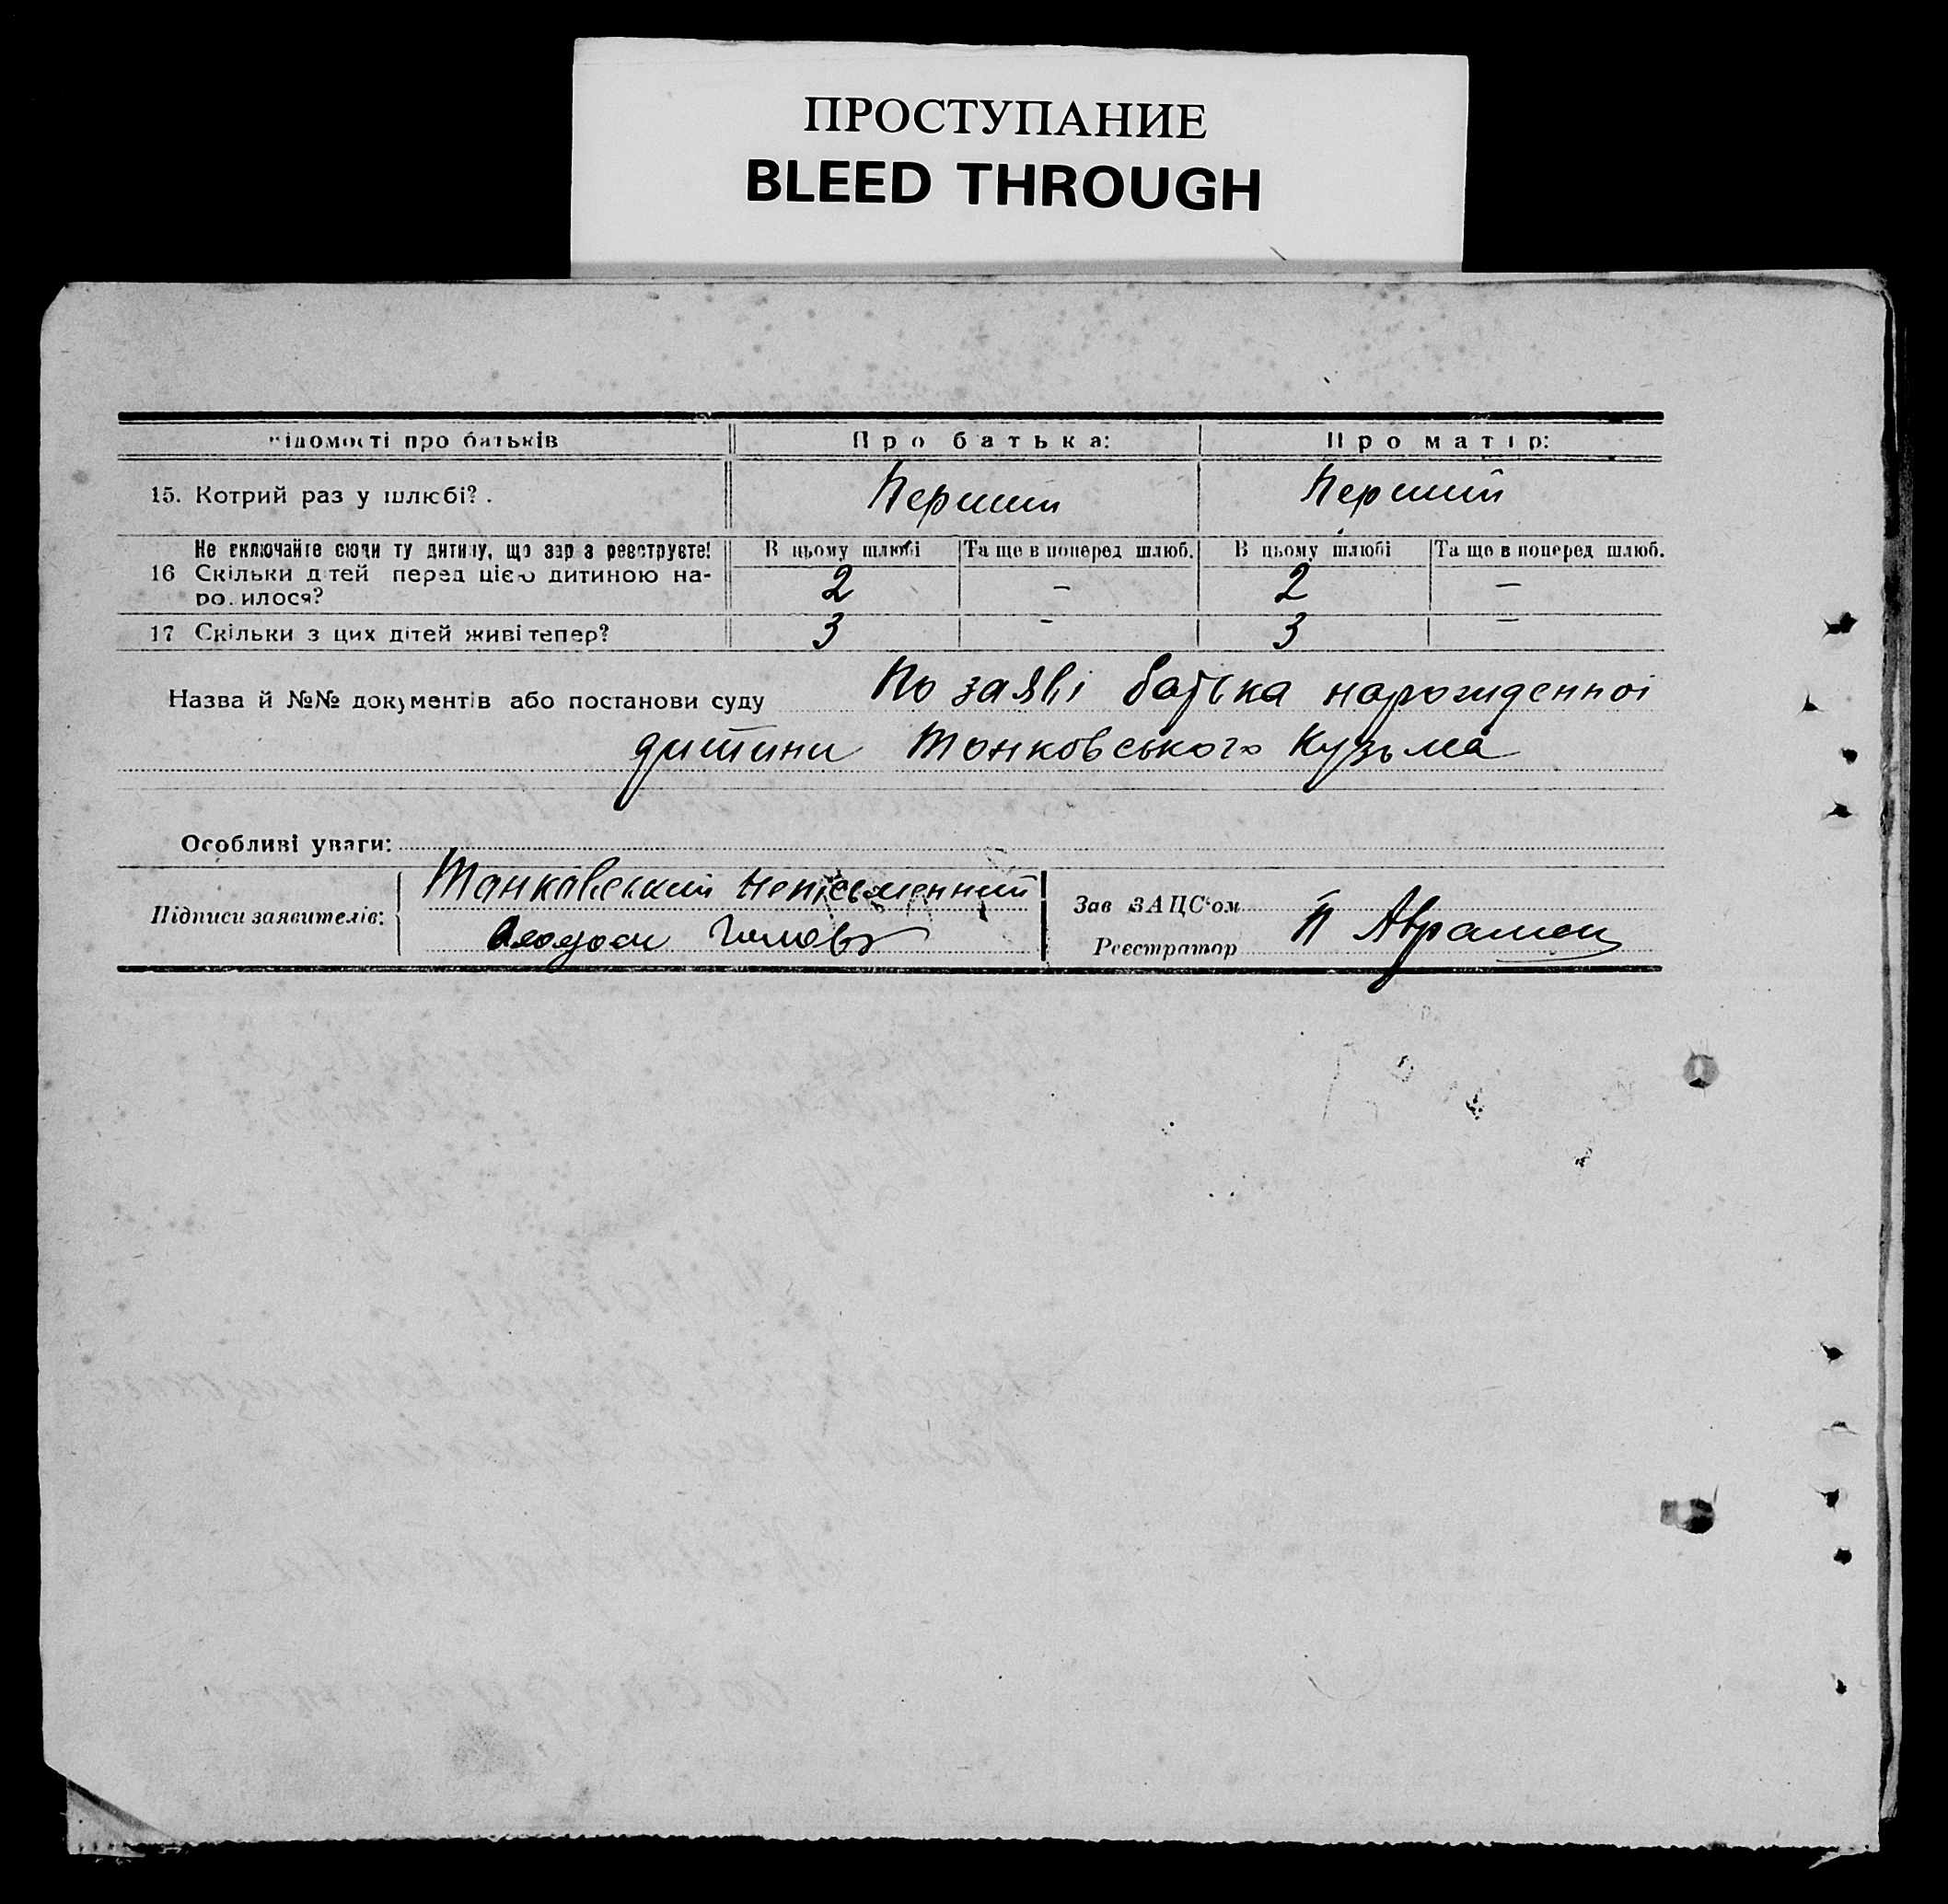 ПРОСТУПАНИЕ
BLEED THROUGH
відомості про батьків Про батька: Про матір:
15. Котрий раз у шлюбі? . Перший Перший
Не включайте сюди ту дитину, що зараз реєструєте! В цьому шлюбі Та ще в поперед шлюб. В цьому шлюбі Та ще в поперед шлюб.
16 Скільки дітей перед цією дитиною на- 2 — 2 —
родилося?
17 Скільки з цих дітей живі тепер? 3 - 3 —
Назва й №№ документів або постанови суду По заяві батька нарожденної
дитини Танковського Кузьма
Особливі уваги:
Підписи заявителів: Танковський неписьменний
Зав ЗАЦС'ом
Реєстратор П Аврамец